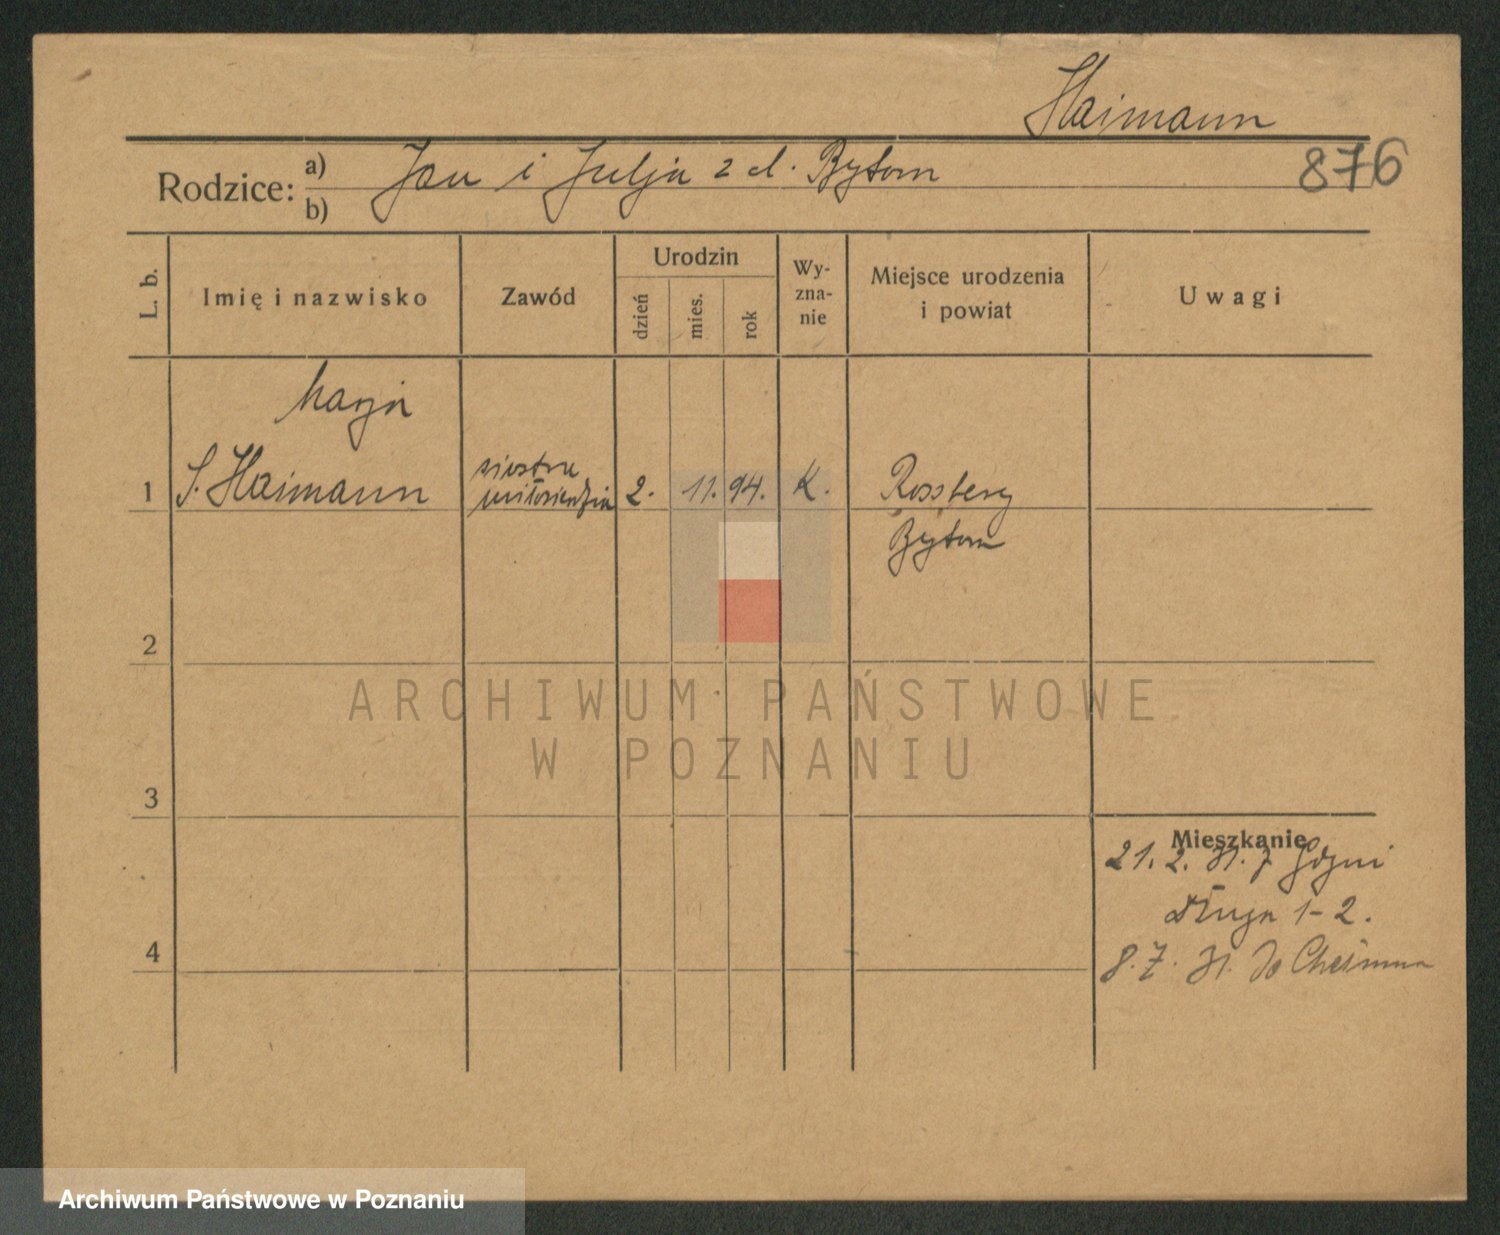 Haimann
876
Rodzice: a) Jan i Julja z d. Bytom
b)
L. b.
Imię i nazwisko
Zawód
Urodzin
dzień
mies.
rok
Wy-
zna-
nie
Miejsce urodzenia
i powiat
Uwagi
Marja
1 S. Haimann siostra miłosierdzia 2. 11. 94. K. Rossberg
Bytom
2
3
4
Mieszkanie
21. 2. 31. z Gdyni
Długa 1-2.
8. 7. 31. do Chełmna
ARCHIWUM PAŃSTWOWE
W POZNANIU
Archiwum Państwowe w Poznaniu